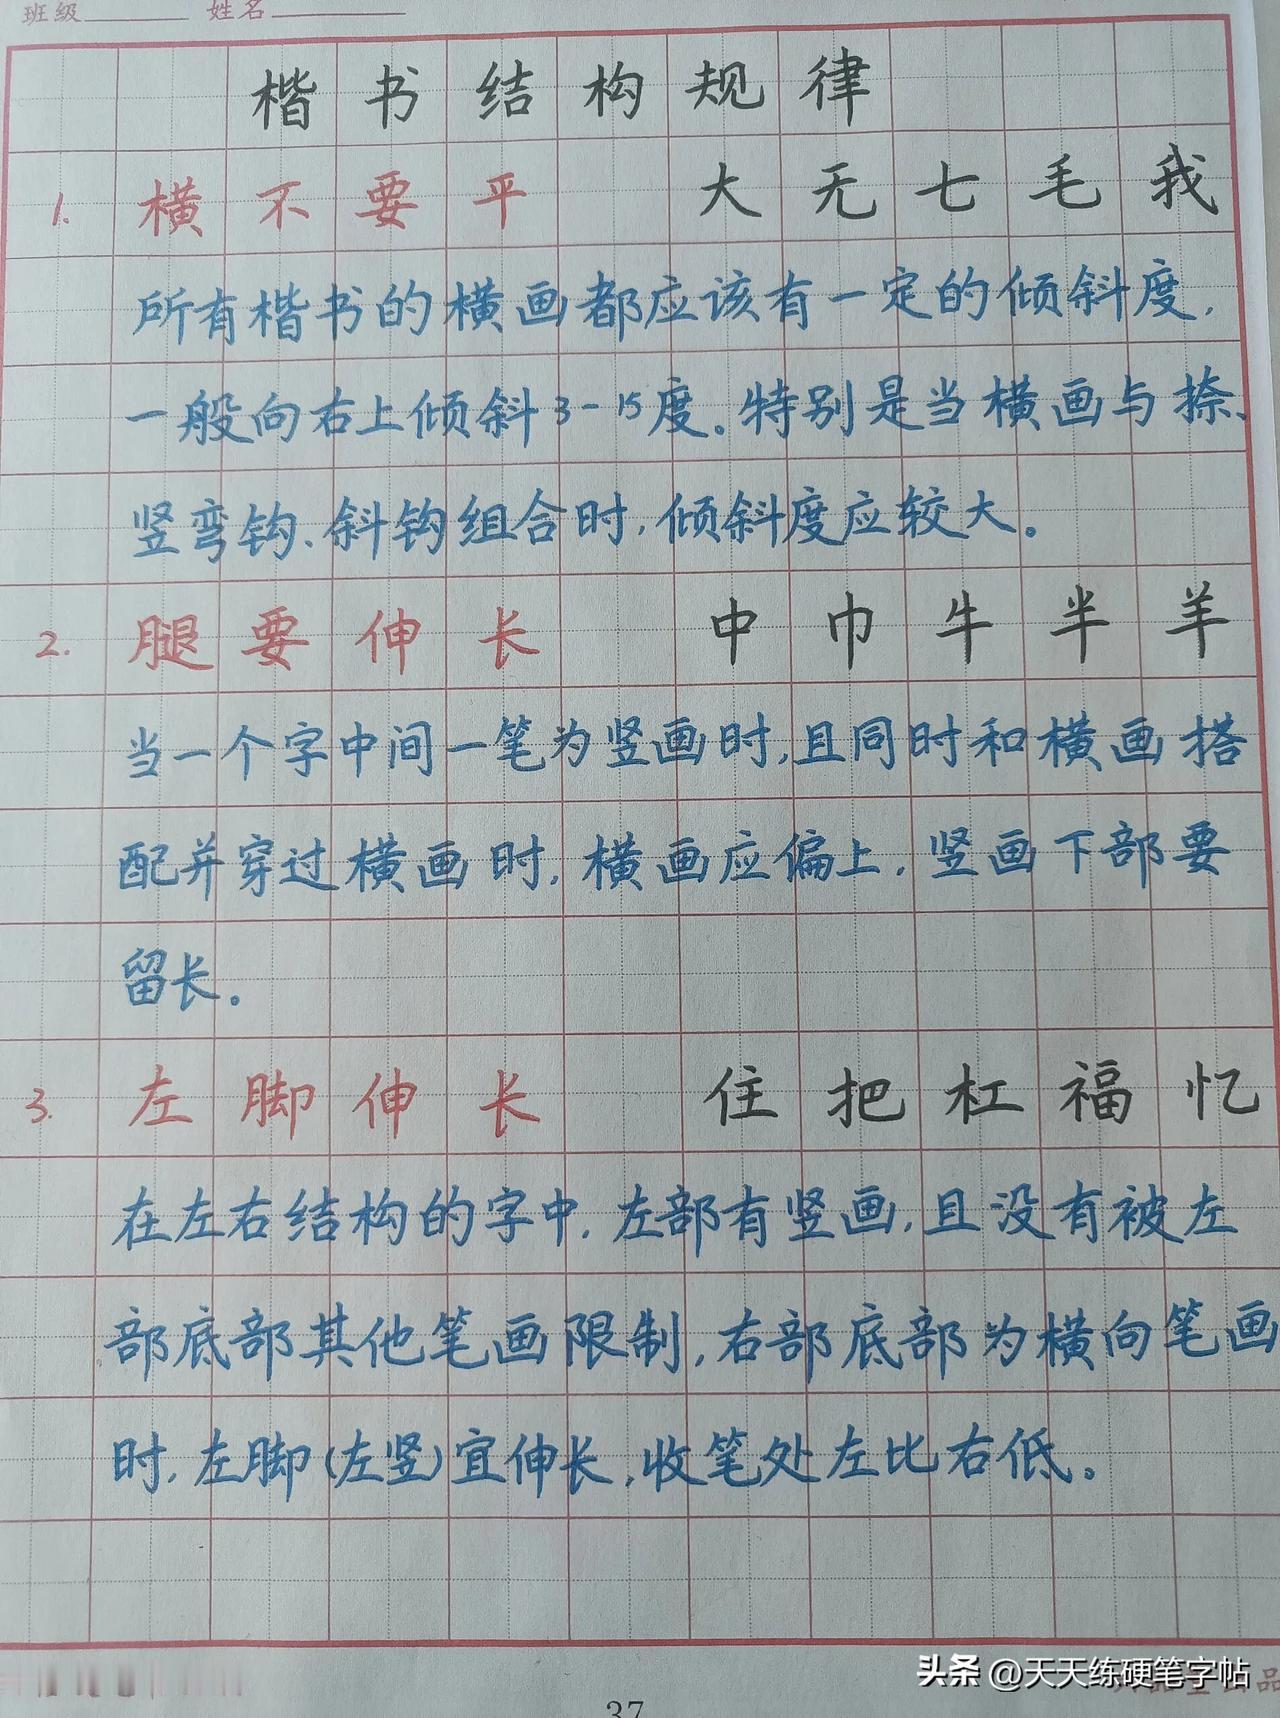 班级 姓名
楷书结构规律
1. 横不要平 大无七毛我
所有楷书的横画都应该有一定的倾斜度,
一般向右上倾斜3-15度。特别是当横画与捺、
竖弯钩、斜钩组合时,倾斜度应较大。
2. 腿要伸长 中巾牛半羊
当一个字中间一笔为竖画时,且同时和横画搭
配并穿过横画时,横画应偏上,竖画下部要
留长。
3. 左脚伸长 住把杠福忆
在左右结构的字中,左部有竖画,且没有被左
部底部其他笔画限制,右部底部为横向笔画
时,左脚(左竖)宜伸长,收笔处左比右低。
头条 @天天练硬笔字帖
37